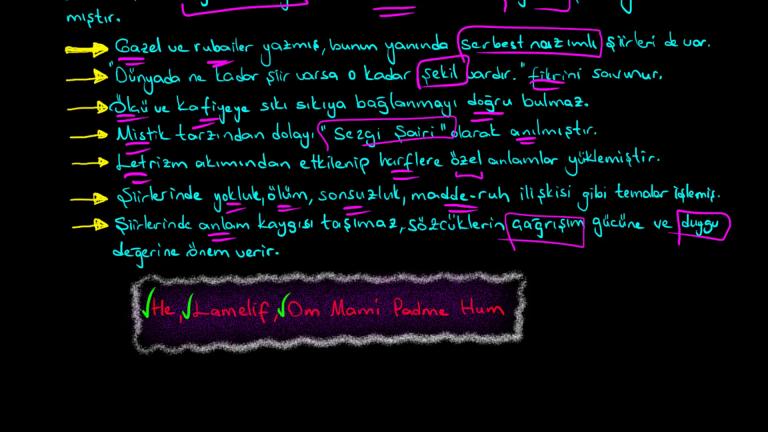 mıştır.
Gazel ve rubailer yazmış, bunun yanında serbest nazımlı şiirleri de var.
"Dünyada ne kadar şiir varsa o kadar şekil vardır." fikrini savunur.
Ölçü ve kafiyeye sıkı sıkıya bağlanmayı doğru bulmaz.
Mistik tarzından dolayı "Sezgi Şairi" olarak anılmıştır.
Letrizm akımından etkilenip harflere özel anlamlar yüklemiştir.
Şiirlerinde yokluk, ölüm, sonsuzluk, madde-ruh ilişkisi gibi temalar işlemiş.
Şiirlerinde anlam kaygısı taşımaz, sözcüklerin çağrışım gücüne ve duygu
değerine önem verir.
He, Lamelif, Om Mami Padme Hum